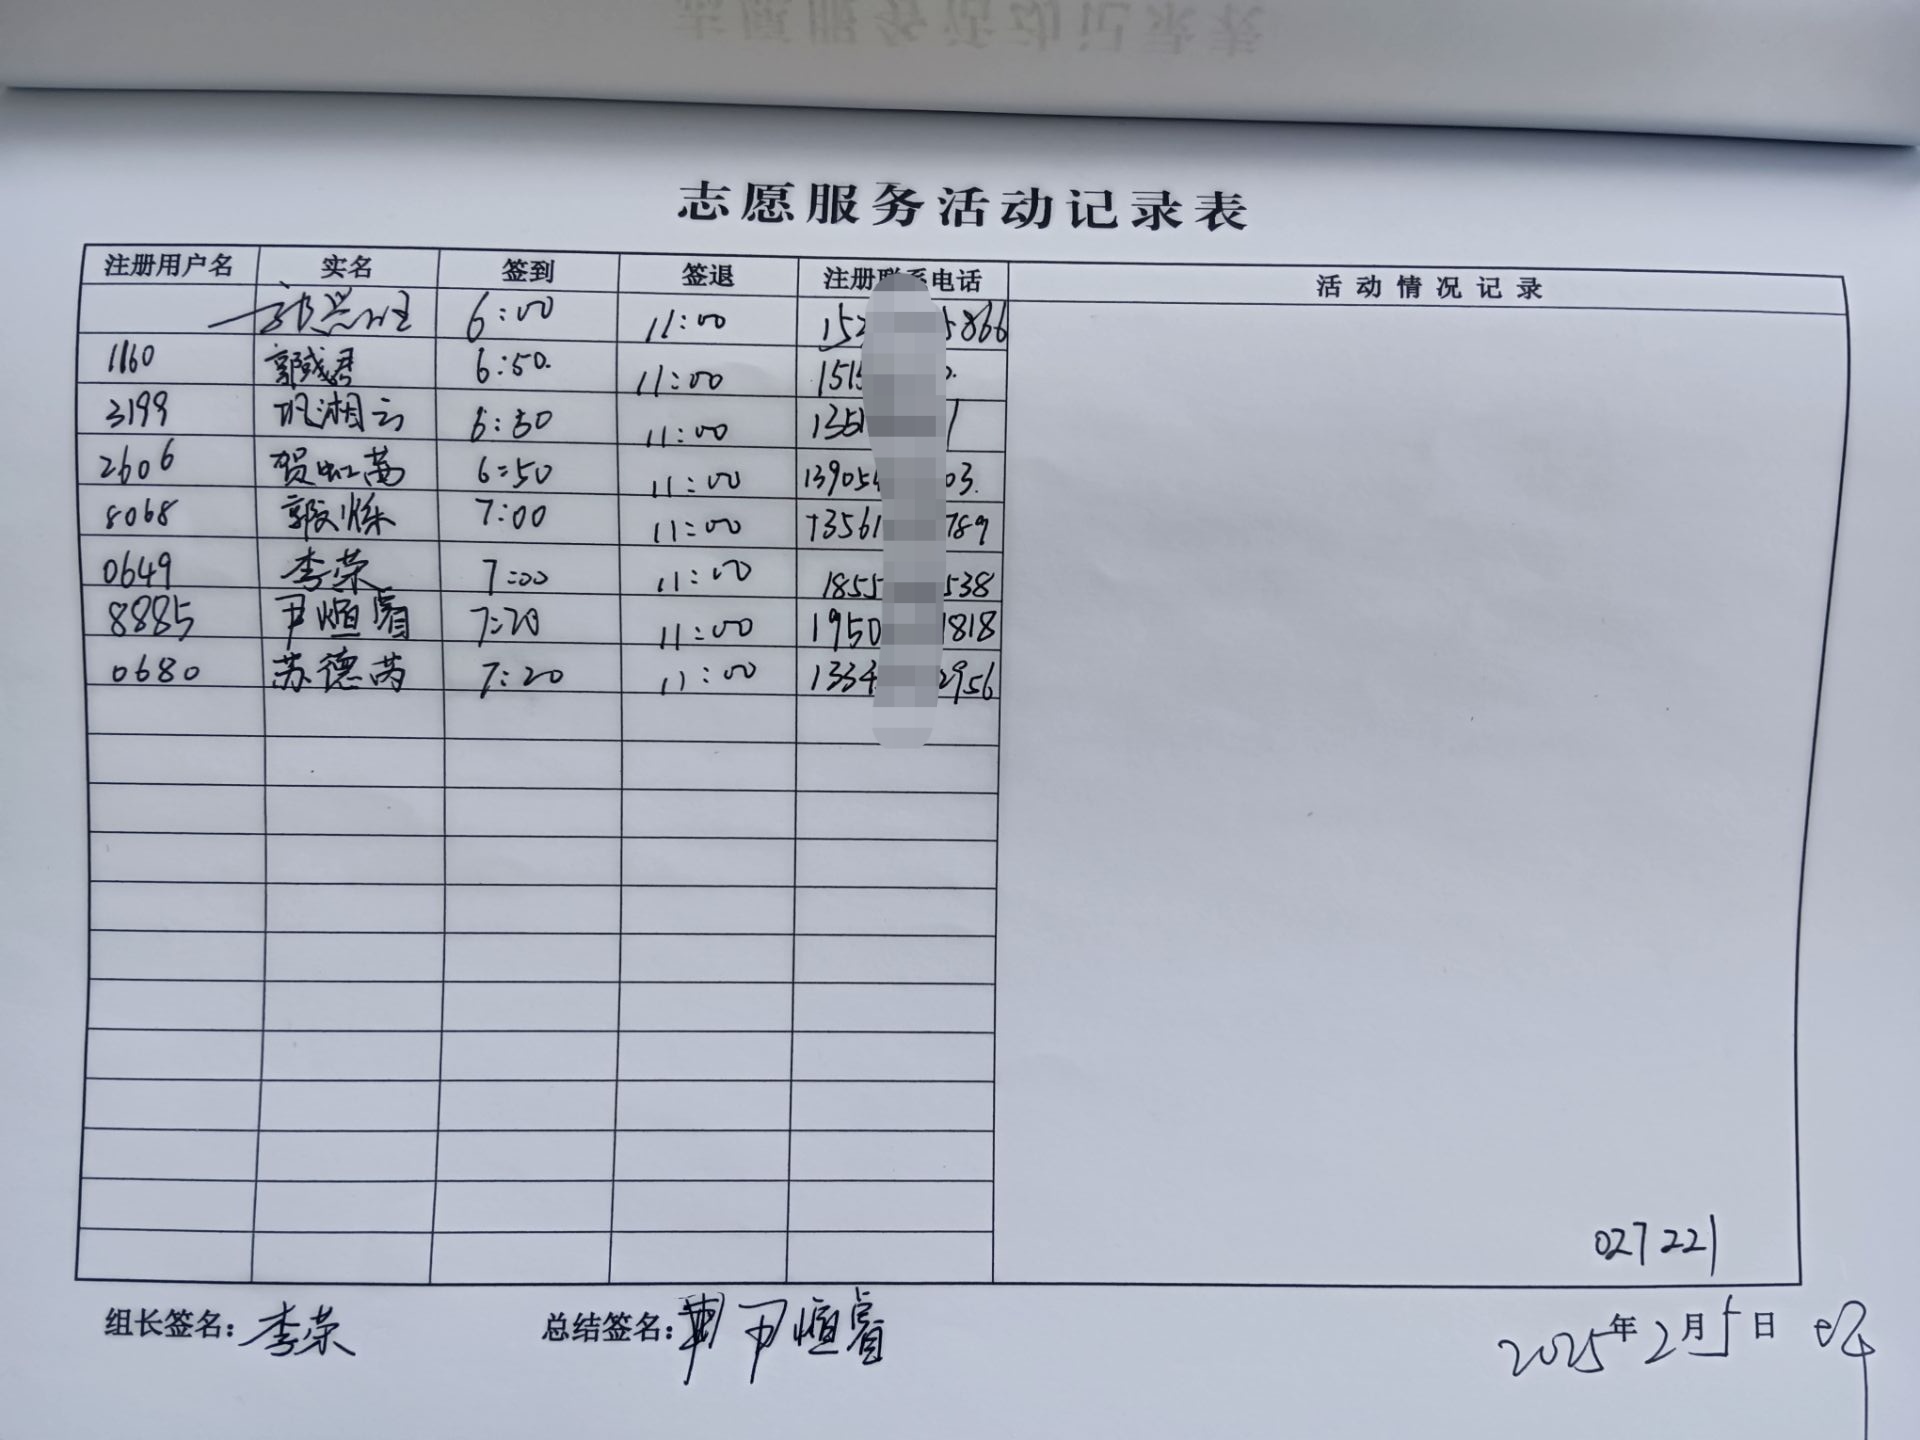 志愿服务活动记录表
注册用户名 实名 签到 签退 注册联系电话 活动情况记录
6:00 11:00 152 5866
1160 郭成君 6:50. 11:00 1515 0.
3199 巩湘云 6:50 11:00 1351 1
2606 贺虹茜 6:50 11:00 13905 03.
8068 郭文烁 7:00 11:00 13561 789
0649 李荣 7:00 11:00 1855 538
8885 尹煊睿 7:20 11:00 1950 1818
0680 苏德芮 7:20 11:00 1334 2956
027221
组长签名: 李荣 总结签名: 尹煊睿 2025年2月5日